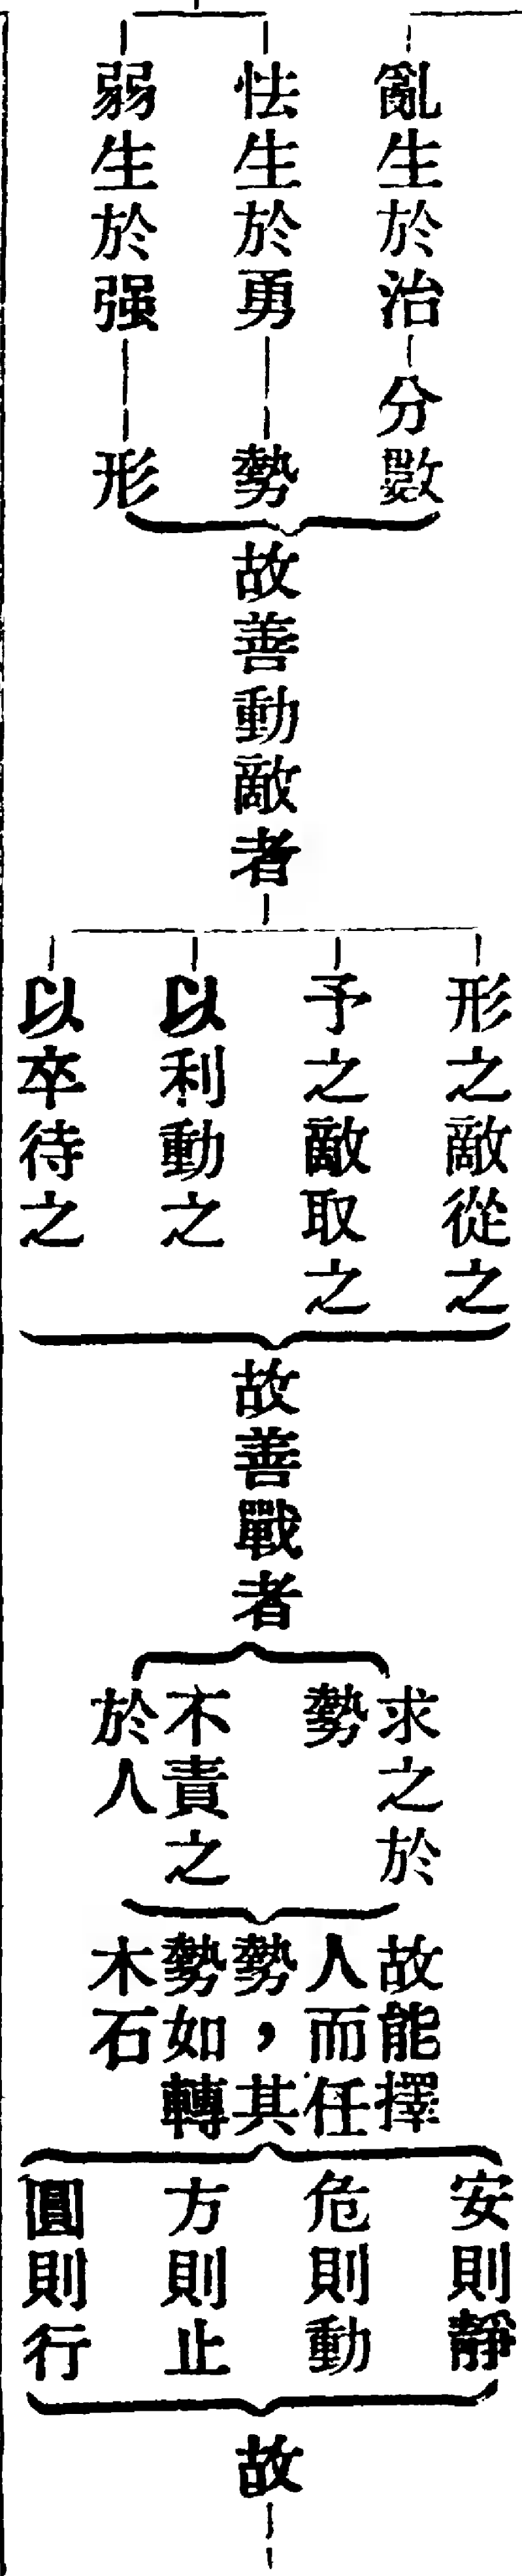 亂生於治 分數
怯生於勇 勢
弱生於强 形
故善動敵者
形之敵從之
予之敵取之
以利動之
以卒待之
故善戰者
求之於
勢
不責之
於人
故能擇
人而任
勢，其
勢如轉
木石
安則靜
危則動
方則止
圓則行
故